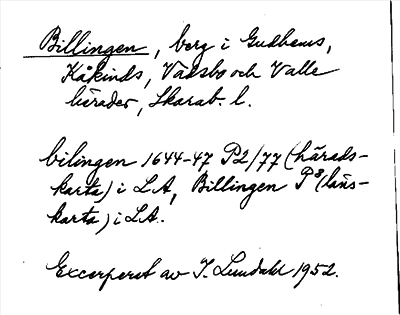 Billingen, berg i Gudhems,
Kåkinds, Vadsbo och Valle
härader, Skarab. l.
bilingen 1644-47 P2/77 (härads-
karta) i LA, Billingen P8 (läns-
karta) i LA.
Excerperat av I. Lundahl 1952.